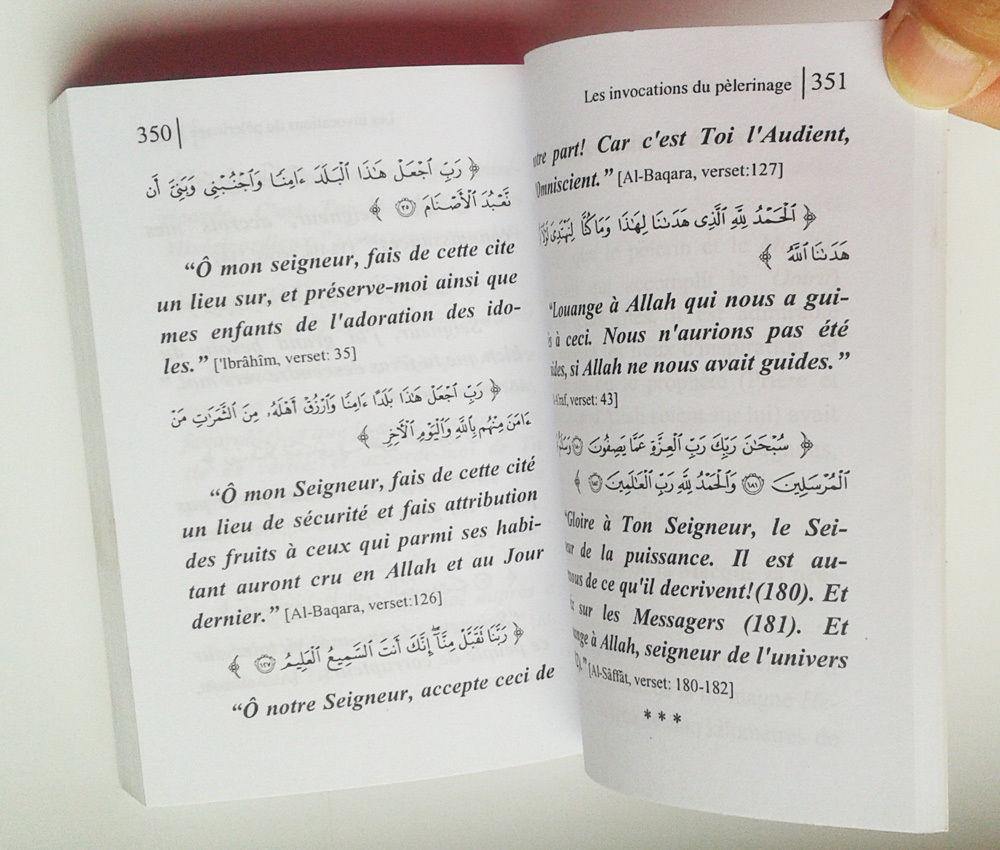 350
﴿ رَبِّ ٱجْعَلْ هَٰذَا ٱلْبَلَدَ ءَامِنًا وَٱجْنُبْنِى وَبَنِىَّ أَن
نَّعْبُدَ ٱلْأَصْنَامَ ٣٥ ﴾
“Ô mon seigneur, fais de cette cite
un lieu sur, et préserve-moi ainsi que
mes enfants de l'adoration des ido-
les.” ['Ibrâhîm, verset: 35]
﴿ رَبِّ ٱجْعَلْ هَٰذَا بَلَدًا ءَامِنًا وَٱرْزُقْ أَهْلَهُۥ مِنَ ٱلثَّمَرَٰتِ مَنْ
ءَامَنَ مِنْهُم بِٱللَّهِ وَٱلْيَوْمِ ٱلْأَخِرِ ﴾
“Ô mon Seigneur, fais de cette cité
un lieu de sécurité et fais attribution
des fruits à ceux qui parmi ses habi-
tant auront cru en Allah et au Jour
dernier.” [Al-Baqara, verset:126]
﴿ رَبَّنَا تَقَبَّلْ مِنَّآ إِنَّكَ أَنتَ ٱلسَّمِيعُ ٱلْعَلِيمُ ١٢٧ ﴾
“Ô notre Seigneur, accepte ceci de
Les invocations du pèlerinage 351
part! Car c'est Toi l'Audient,
l'Omniscient.” [Al-Baqara, verset:127]
﴿ ٱلْحَمْدُ لِلَّهِ ٱلَّذِى هَدَىٰنَا لِهَٰذَا وَمَا كُنَّا لِنَهْتَدِىَ لَوْلَآ أَنْ
هَدَىٰنَا ٱللَّهُ ﴾
“Louange à Allah qui nous a gui-
à ceci. Nous n'aurions pas été
si Allah ne nous avait guides.”
verset: 43]
﴿ سُبْحَٰنَ رَبِّكَ رَبِّ ٱلْعِزَّةِ عَمَّا يَصِفُونَ ١٨٠
ٱلْمُرْسَلِينَ ١٨١ وَٱلْحَمْدُ لِلَّهِ رَبِّ ٱلْعَٰلَمِينَ ١٨٢ ﴾
“Gloire à Ton Seigneur, le Sei-
de la puissance. Il est au-
de ce qu'il decrivent!(180). Et
sur les Messagers (181). Et
à Allah, seigneur de l'univers
[Al-Sâffât, verset: 180-182]
***